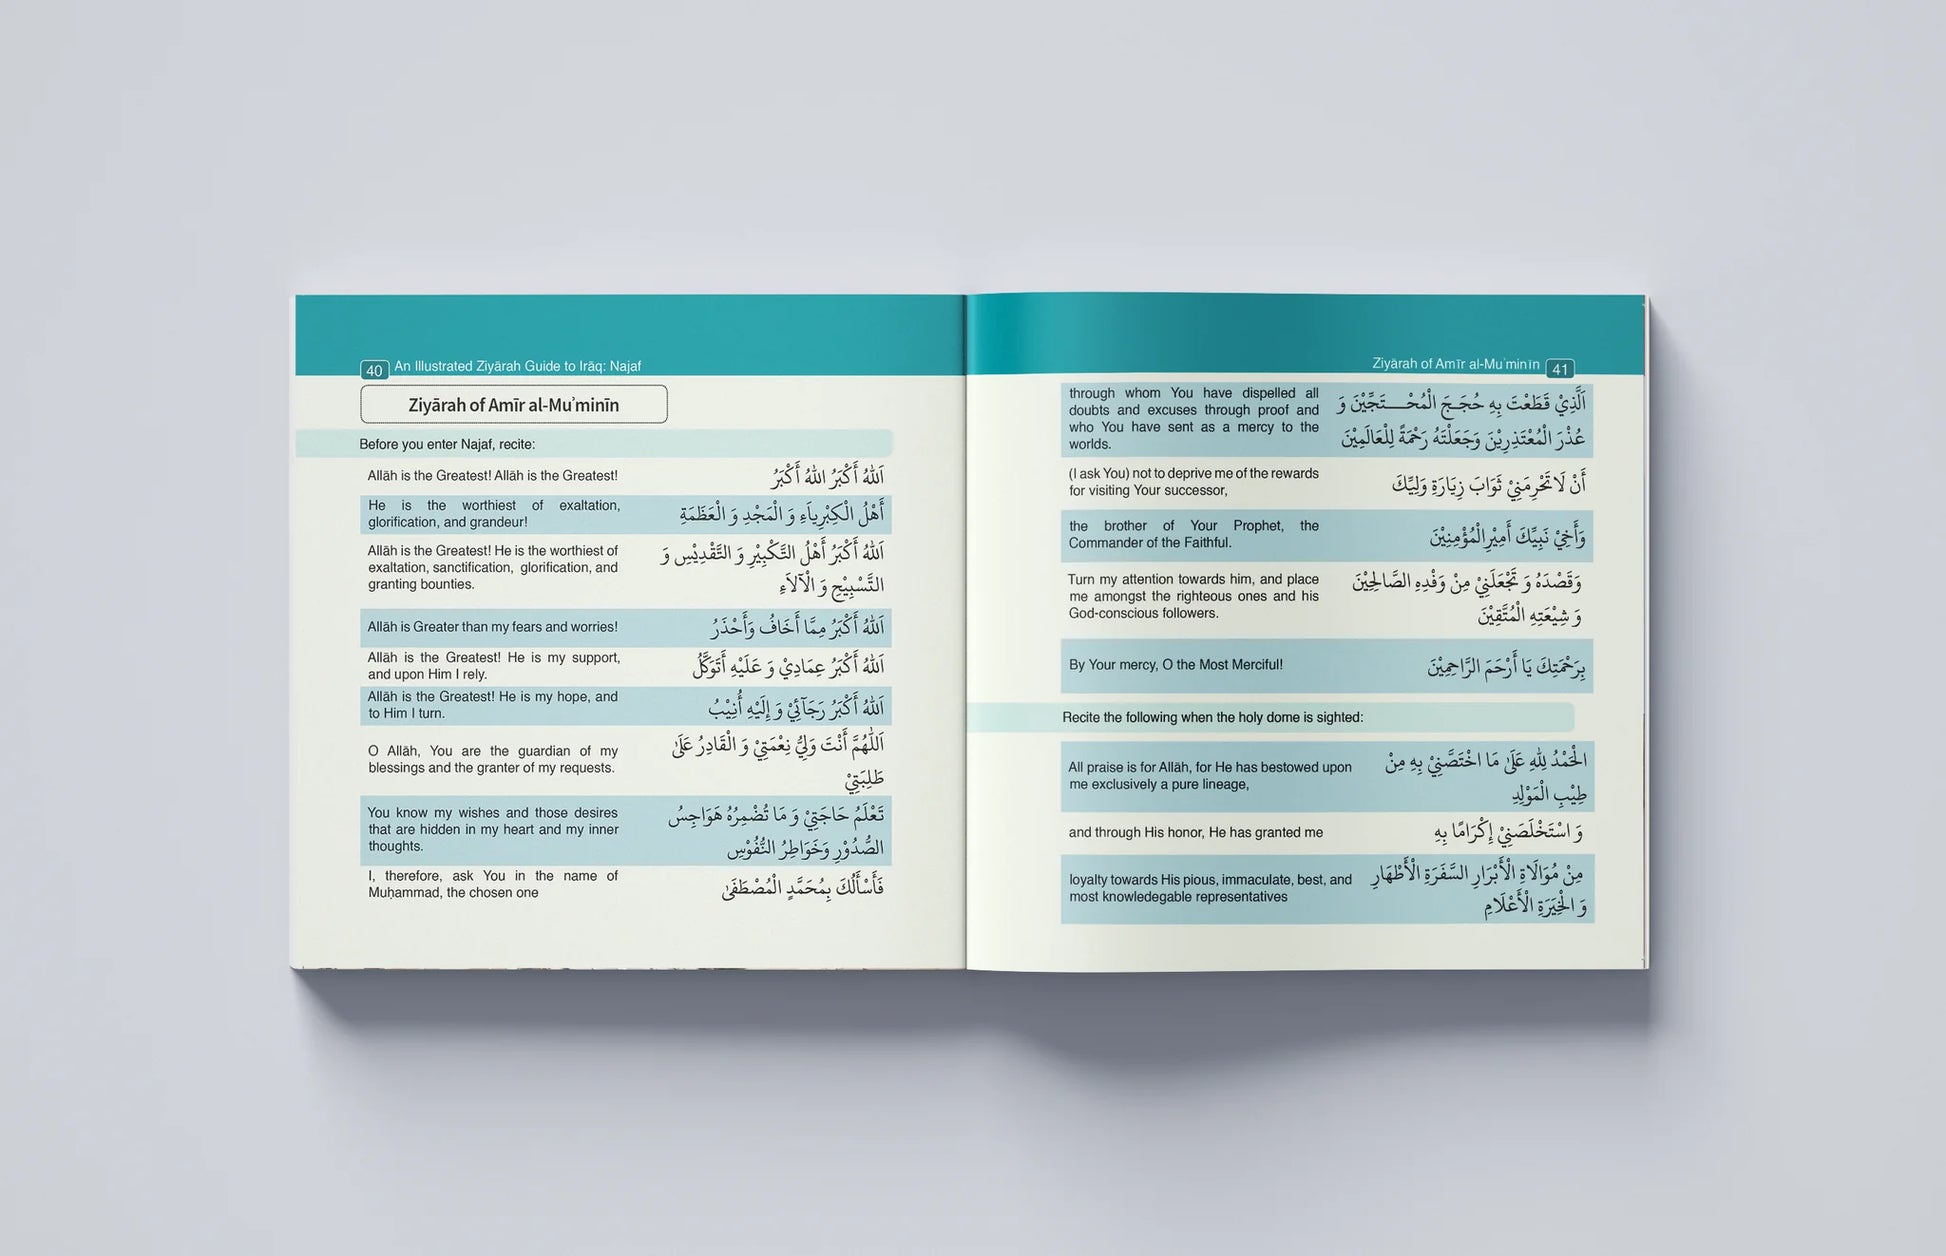 40 An Illustrated Ziyārah Guide to Irāq: Najaf
Ziyārah of Amīr al-Muʾminīn
Before you enter Najaf, recite:
Allāh is the Greatest! Allāh is the Greatest!
اَللّٰهُ أَكْبَرُ اللّٰهُ أَكْبَرُ
He is the worthiest of exaltation,
glorification, and grandeur!
أَهْلُ الْكِبْرِيَاءِ وَ الْمَجْدِ وَ الْعَظَمَةِ
Allāh is the Greatest! He is the worthiest of
exaltation, sanctification, glorification, and
granting bounties.
اَللّٰهُ أَكْبَرُ أَهْلُ التَّكْبِيْرِ وَ التَّقْدِيْسِ وَ
التَّسْبِيْحِ وَ الْآلَاءِ
Allāh is Greater than my fears and worries!
اَللّٰهُ أَكْبَرُ مِمَّا أَخَافُ وَأَحْذَرُ
Allāh is the Greatest! He is my support,
and upon Him I rely.
اَللّٰهُ أَكْبَرُ عِمَادِيْ وَ عَلَيْهِ أَتَوَكَّلُ
Allāh is the Greatest! He is my hope, and
to Him I turn.
اَللّٰهُ أَكْبَرُ رَجَآئِيْ وَ إِلَيْهِ أُنِيْبُ
O Allāh, You are the guardian of my
blessings and the granter of my requests.
اَللّٰهُمَّ أَنْتَ وَلِيُّ نِعْمَتِيْ وَ الْقَادِرُ عَلىٰ
طَلِبَتِيْ
You know my wishes and those desires
that are hidden in my heart and my inner
thoughts.
تَعْلَمُ حَاجَتِيْ وَ مَا تُضْمِرُهُ هَوَاجِسُ
الصُّدُوْرِ وَخَوَاطِرُ النُّفُوْسِ
I, therefore, ask You in the name of
Muḥammad, the chosen one
فَأَسْأَلُكَ بِمُحَمَّدٍ الْمُصْطَفَىٰ
Ziyārah of Amīr al-Muʾminīn 41
through whom You have dispelled all
doubts and excuses through proof and
who You have sent as a mercy to the
worlds.
اَلَّذِيْ قَطَعْتَ بِهِ حُجَجَ الْمُحْـــتَجِّيْنَ وَ
عُذْرَ الْمُعْتَذِرِيْنَ وَجَعَلْتَهُ رَحْمَةً لِلْعَالَمِيْنَ
(I ask You) not to deprive me of the rewards
for visiting Your successor,
أَنْ لَا تَحْرِمَنِيْ ثَوَابَ زِيَارَةِ وَلِيِّكَ
the brother of Your Prophet, the
Commander of the Faithful.
وَأَخِيْ نَبِيِّكَ أَمِيْرِالْمُؤْمِنِيْنَ
Turn my attention towards him, and place
me amongst the righteous ones and his
God-conscious followers.
وَقَصْدَهُ وَ تَجْعَلَنِيْ مِنْ وَفْدِهِ الصَّالِحِيْنَ
وَ شِيْعَتِهِ الْمُتَّقِيْنَ
By Your mercy, O the Most Merciful!
بِرَحْمَتِكَ يَا أَرْحَمَ الرَّاحِمِيْنَ
Recite the following when the holy dome is sighted:
All praise is for Allāh, for He has bestowed upon
me exclusively a pure lineage,
الْحَمْدُ لِلّٰهِ عَلَىٰ مَا اخْتَصَّنِيْ بِهِ مِنْ
طِيْبِ الْمَوْلِدِ
and through His honor, He has granted me
وَ اسْتَخْلَصَنِيْ إِكْرَامًا بِهِ
loyalty towards His pious, immaculate, best, and
most knowledegable representatives
مِنْ مُوَالَاةِ الْأَبْرَارِ السَّفَرَةِ الْأَطْهَارِ
وَ الْخِيَرَةِ الْأَعْلَامِ